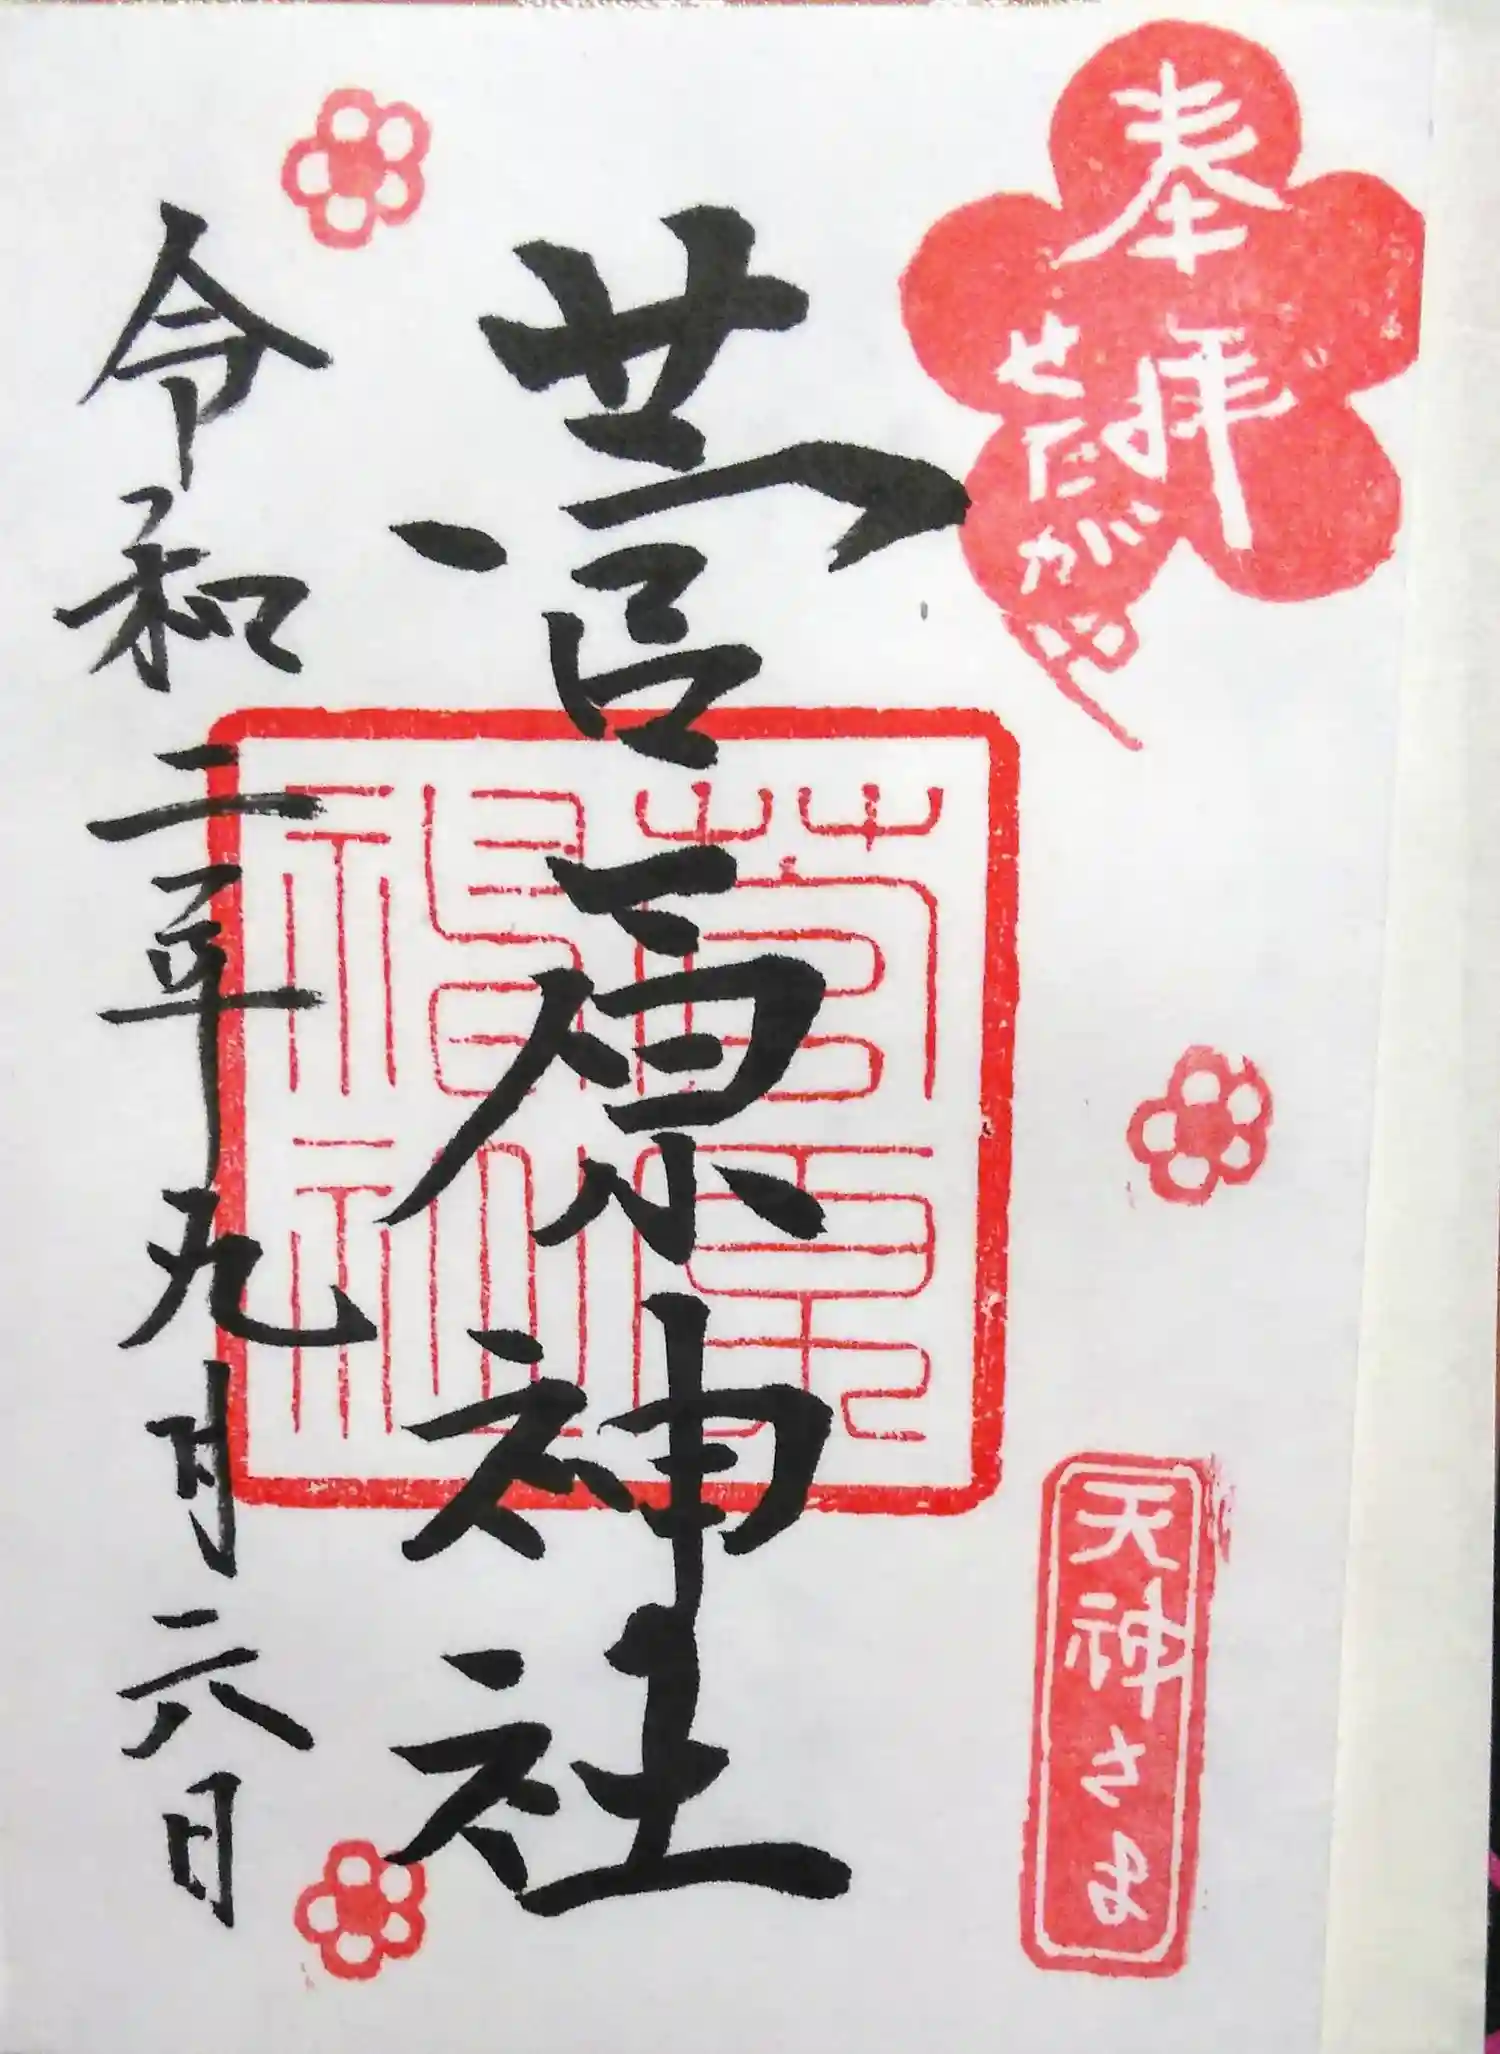 奉拝
せたがや
天神さま
菅原神社
令和二年九月六日